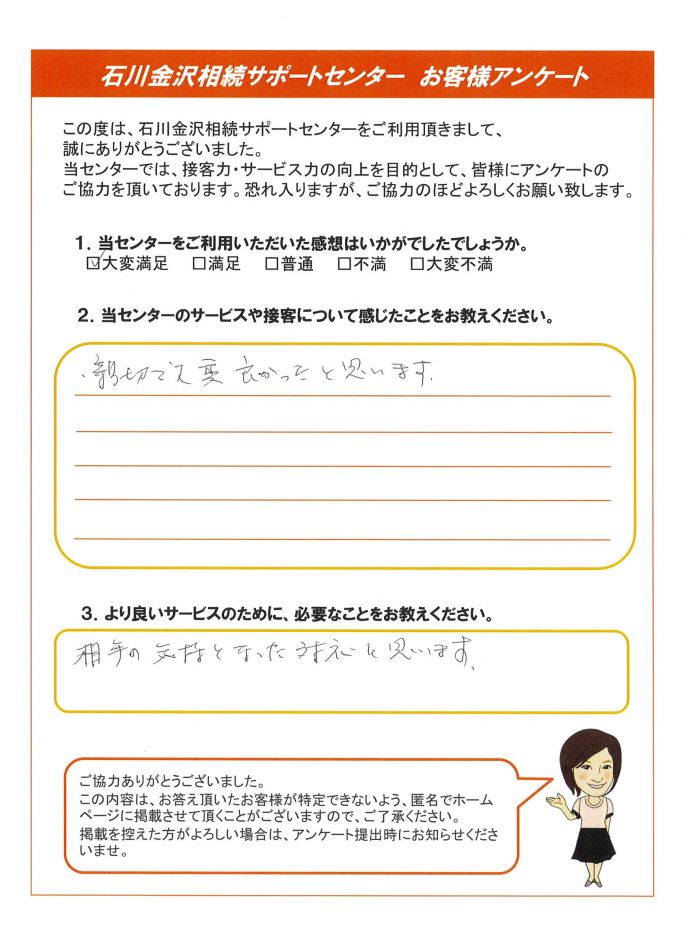 石川金沢相続サポートセンター お客様アンケート
この度は、石川金沢相続サポートセンターをご利用頂きまして、
誠にありがとうございました。
当センターでは、接客力・サービス力の向上を目的として、皆様にアンケートの
ご協力を頂いております。恐れ入りますが、ご協力のほどよろしくお願い致します。
1. 当センターをご利用いただいた感想はいかがでしたでしょうか。
☑大変満足 □満足 □普通 □不満 □大変不満
2. 当センターのサービスや接客について感じたことをお教えください。
・親切で大変良かったと思います。
3. より良いサービスのために、必要なことをお教えください。
相手の気持となった対応と思います。
ご協力ありがとうございました。
この内容は、お答え頂いたお客様が特定できないよう、匿名でホーム
ページに掲載させて頂くことがございますので、ご了承ください。
掲載を控えた方がよろしい場合は、アンケート提出時にお知らせくださ
いませ。